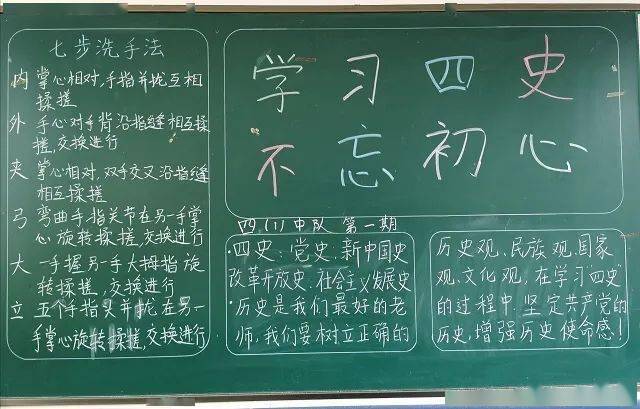 七步洗手法
内 掌心相对,手指并拢互相
揉搓
外 手心对手背沿指缝相互揉
搓,交换进行
夹 掌心相对,双手交叉沿指缝
相互揉搓
弓 弯曲手指关节在另一手掌
心旋转揉搓,交换进行
大 一手握另一手大拇指旋
转揉搓,交换进行
立 五个手指尖并拢在另一
手掌心旋转揉搓,交换进行
学习四史
不忘初心
四(1)中队 第一期
四史:党史、新中国史
改革开放史、社会主义发展史
·历史是我们最好的老
师,我们要树立正确的
历史观、民族观、国家
观、文化观,在学习四史
的过程中,坚定共产党的
历史,增强历史使命感!